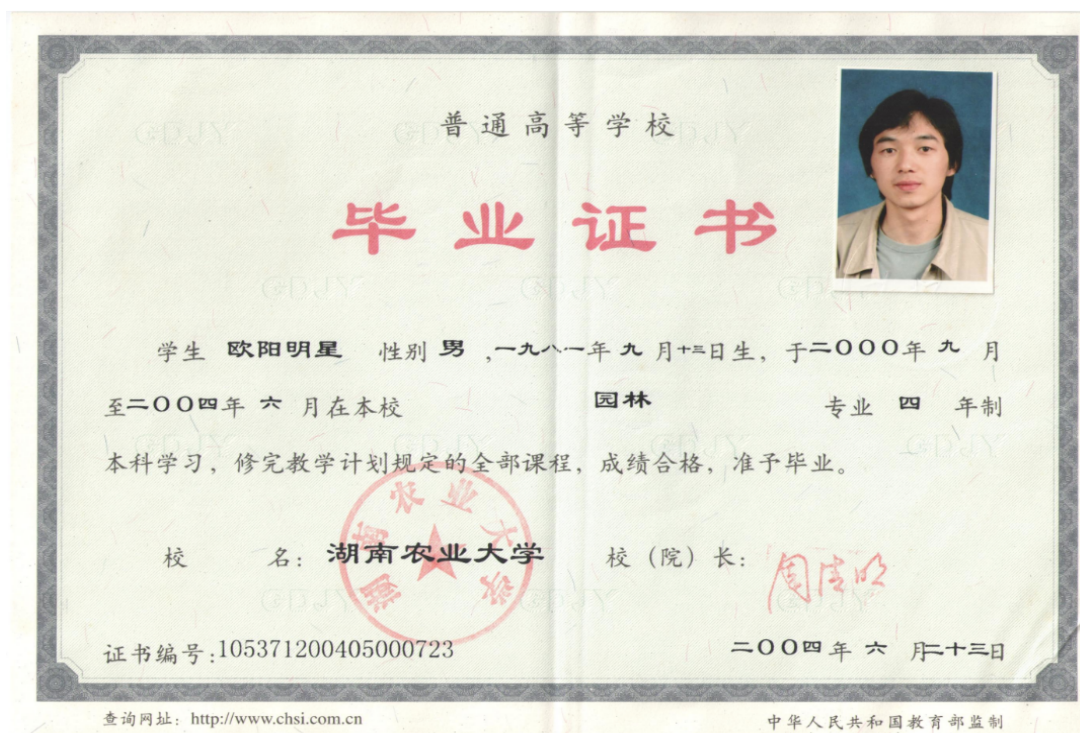 普通高等学校
毕业证书
学生 欧阳明星 性别 男 ,一九八一年 九 月十三日生，于二〇〇〇年 九 月
至二〇〇四年 六 月在本校 园林 专业 四 年制
本科学习，修完教学计划规定的全部课程，成绩合格，准予毕业。
湖南农业大学
校 名：湖南农业大学 校（院）长：周清明
证书编号:105371200405000723 二〇〇四年 六 月二十三日
查询网址：http://www.chsi.com.cn 中华人民共和国教育部监制